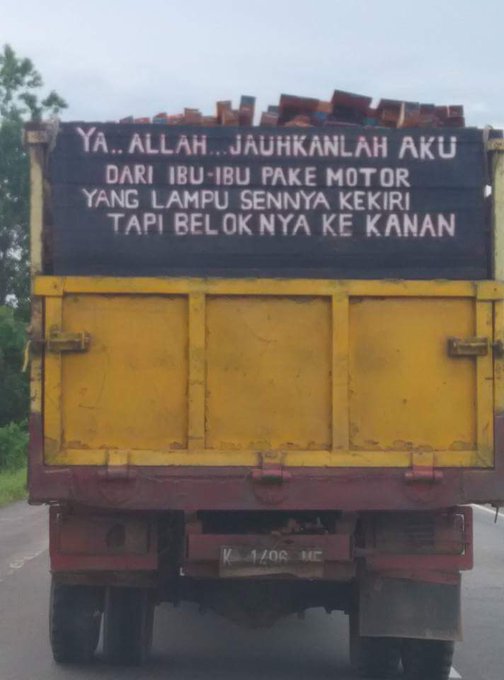 YA.. ALLAH... JAUHKANLAH AKU
DARI IBU-IBU PAKE MOTOR
YANG LAMPU SENNYA KEKIRI
TAPI BELOKNYA KE KANAN
K 1496